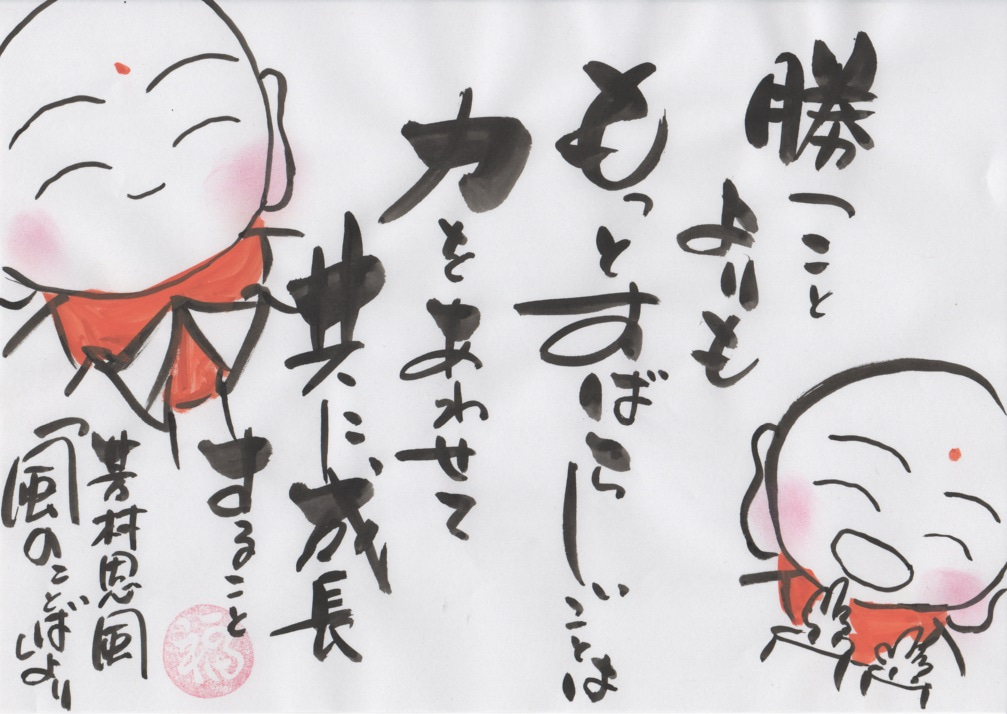 勝つこと
よりも
もっとすばらしいことは
力をあわせて
共に成長
すること
芳村思風
「風のことば」より
福